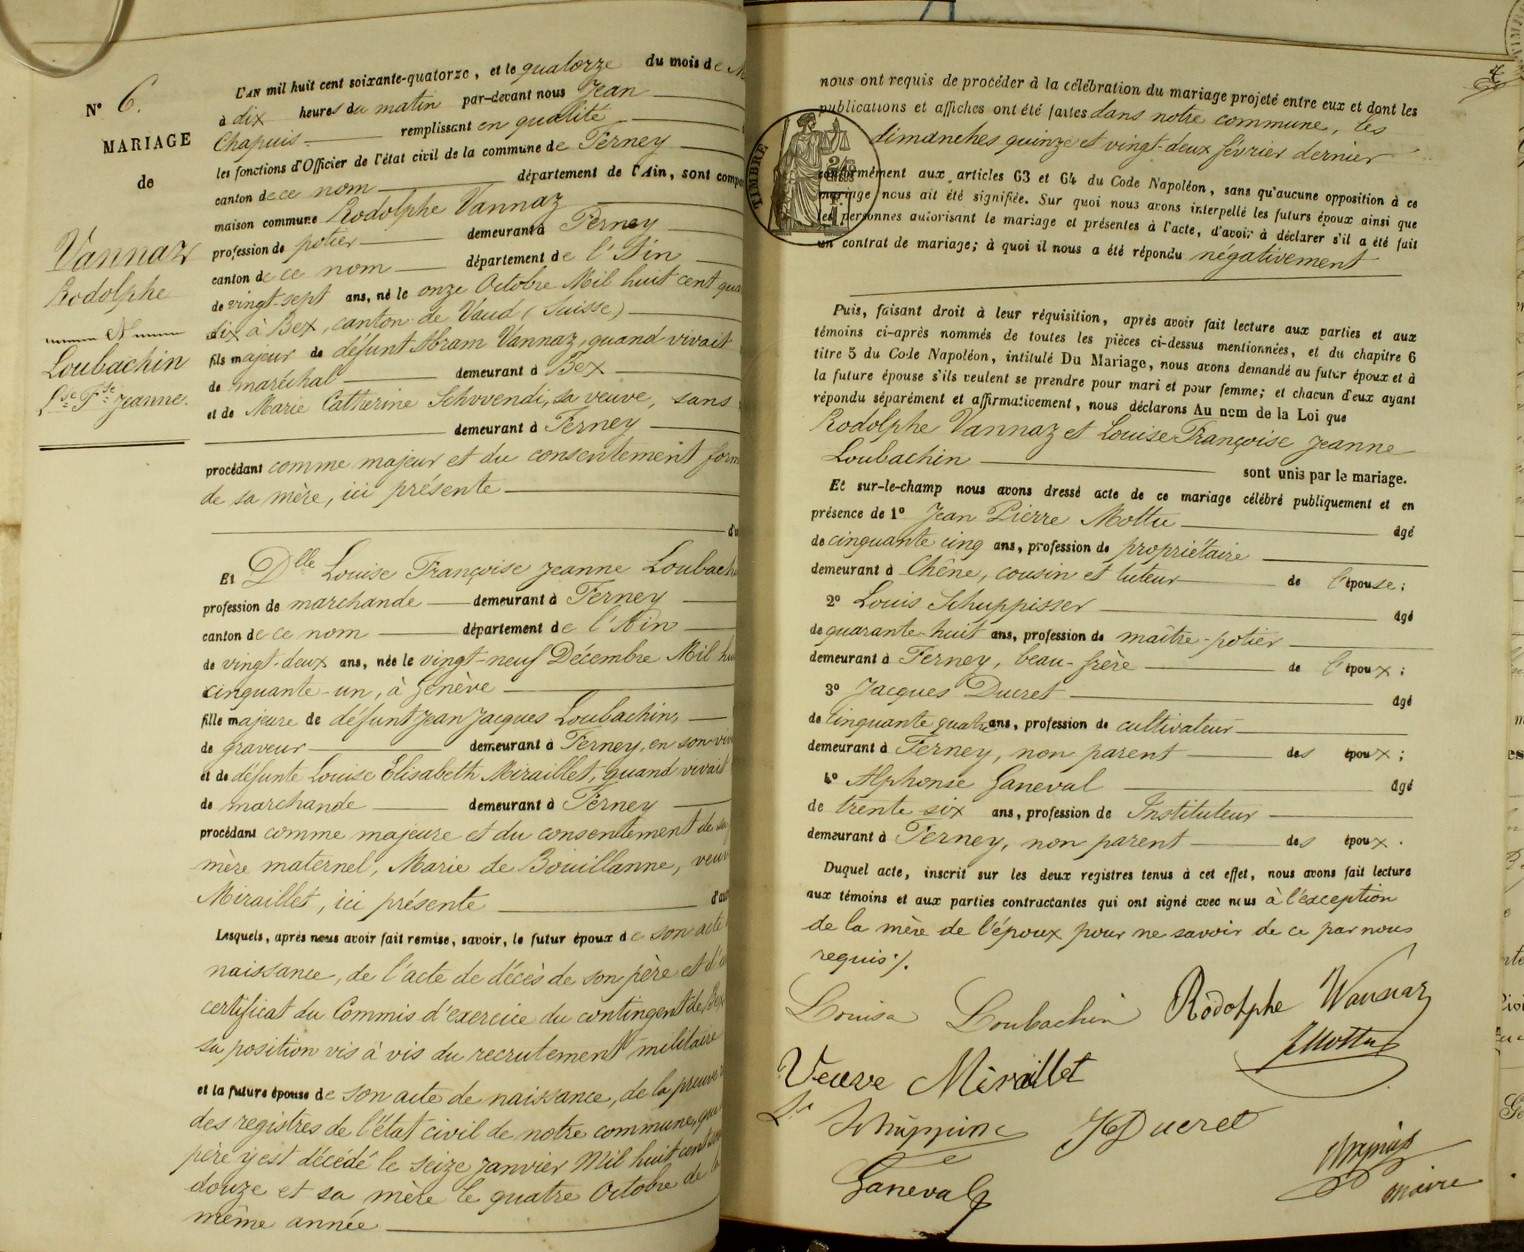 N° 6.
MARIAGE
de
Vannaz
Rodolphe
Et
Loubachin
Lse Fse Jeanne.
L'AN mil huit cent soixante-quatorze, et le quatorze du mois de M
à dix heures du matin par-devant nous Jean
Chapuis remplissant en qualité
les fonctions d'Officier de l'état civil de la commune de Ferney
canton de ce nom département de l'Ain, sont comp
maison commune Rodolphe Vannaz
profession de potier demeurant à Ferney
canton de ce nom département de l'Ain
de vingt-sept ans, né le onze Octobre Mil huit cent qua
six à Bex, canton de Vaud (Suisse)
fils majeur de défunt Abram Vannaz, quand vivait
de maréchal demeurant à Bex
et de Marie Catherine Schwendi, sa veuve, sans
demeurant à Ferney
procédant comme majeur et du consentement form
de sa mère, ici présente
d'u
Et Dlle Louise Françoise Jeanne Loubach
profession de marchande demeurant à Ferney
canton de ce nom département de l'Ain
de vingt-deux ans, née le vingt-neuf Décembre Mil hu
cinquante-un, à Genève
fille majeure de défunt Jean Jacques Loubachin,
de graveur demeurant à Ferney, en son viv
et de défunte Louise Elisabeth Miraillet, quand vivait
de marchande demeurant à Ferney
procédant comme majeure et du consentement de sa
mère maternel, Marie de Bouillanne, veuv
Miraillet, ici présente d'au
Lesquels, après nous avoir fait remise, savoir, le futur époux de son acte
naissance, de l'acte de décès de son père et d'u
certificat du Commis d'exercice du contingent de Bex
sa position vis à vis du recrutement militaire
et la future épouse de son acte de naissance, de la preuve
des registres de l'état civil de notre commune, que
père y est décédé le seize Janvier Mil huit cent
douze et sa mère le quatre Octobre de la
même année
nous ont requis de procéder à la célébration du mariage projeté entre eux et dont les
publications et affiches ont été faites dans notre commune, les
dimanches quinze et vingt-deux février dernier
TIMBRE
conformément aux articles 63 et 64 du Code Napoléon, sans qu'aucune opposition à ce
mariage nous ait été signifiée. Sur quoi nous avons interpellé les futurs époux ainsi que
les personnes autorisant le mariage et présentes à l'acte, d'avoir à déclarer s'il a été fait
un contrat de mariage; à quoi il nous a été répondu négativement
Puis, faisant droit à leur réquisition, après avoir fait lecture aux parties et aux
témoins ci-après nommés de toutes les pièces ci-dessus mentionnées, et du chapitre 6
titre 5 du Code Napoléon, intitulé Du Mariage, nous avons demandé au futur époux et à
la future épouse s'ils veulent se prendre pour mari et pour femme; et chacun d'eux ayant
répondu séparément et affirmativement, nous déclarons Au nom de la Loi que
Rodolphe Vannaz et Louise Françoise Jeanne
Loubachin sont unis par le mariage.
Et sur-le-champ nous avons dressé acte de ce mariage célébré publiquement et en
présence de 1° Jean Pierre Mottu âgé
de cinquante cinq ans, profession de propriétaire
demeurant à Chêne, cousin et tuteur de l'épouse;
2° Louis Schuppisser âgé
de quarante-huit ans, profession de maître-potier
demeurant à Ferney, beau-frère de l'époux;
3° Jacques Ducret âgé
de cinquante quatre ans, profession de cultivateur
demeurant à Ferney, non parent des époux;
4° Alphonse Ganeval âgé
de trente six ans, profession de Instituteur
demeurant à Ferney, non parent des époux.
Duquel acte, inscrit sur les deux registres tenus à cet effet, nous avons fait lecture
aux témoins et aux parties contractantes qui ont signé avec nous à l'exception
de la mère de l'époux pour ne savoir de ce par nous
requis ./.
Louisa Loubachin Rodolphe Wannaz
JMottu
Veuve Miraillet
Ls
JDucret
Ganeval
maire